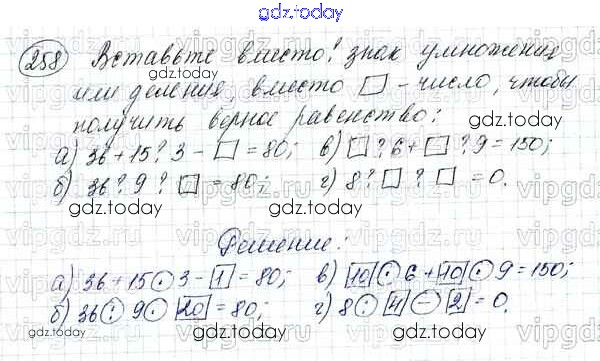 gdz.today
258 Вставьте вместо! знак умножения
gdz.today
или деления, вместо □ - число, чтобы
получить верное равенство:
gdz.today
а) 36 + 15 ? 3 - □ = 80; в) □ ? 6 + □ ? 9 = 150;
б) 36 ? 9 ? □ = 80; г) 8 ? □ ? □ = 0.
gdz.today
gdz.today
Решение:
gdz.today
а) 36 + 15 · 3 - 1 = 80; в) 10 · 6 + 10 · 9 = 150;
б) 36 : 9 · 20 = 80; г) 8 · 4 - 2 = 0.
gdz.today
gdz.today